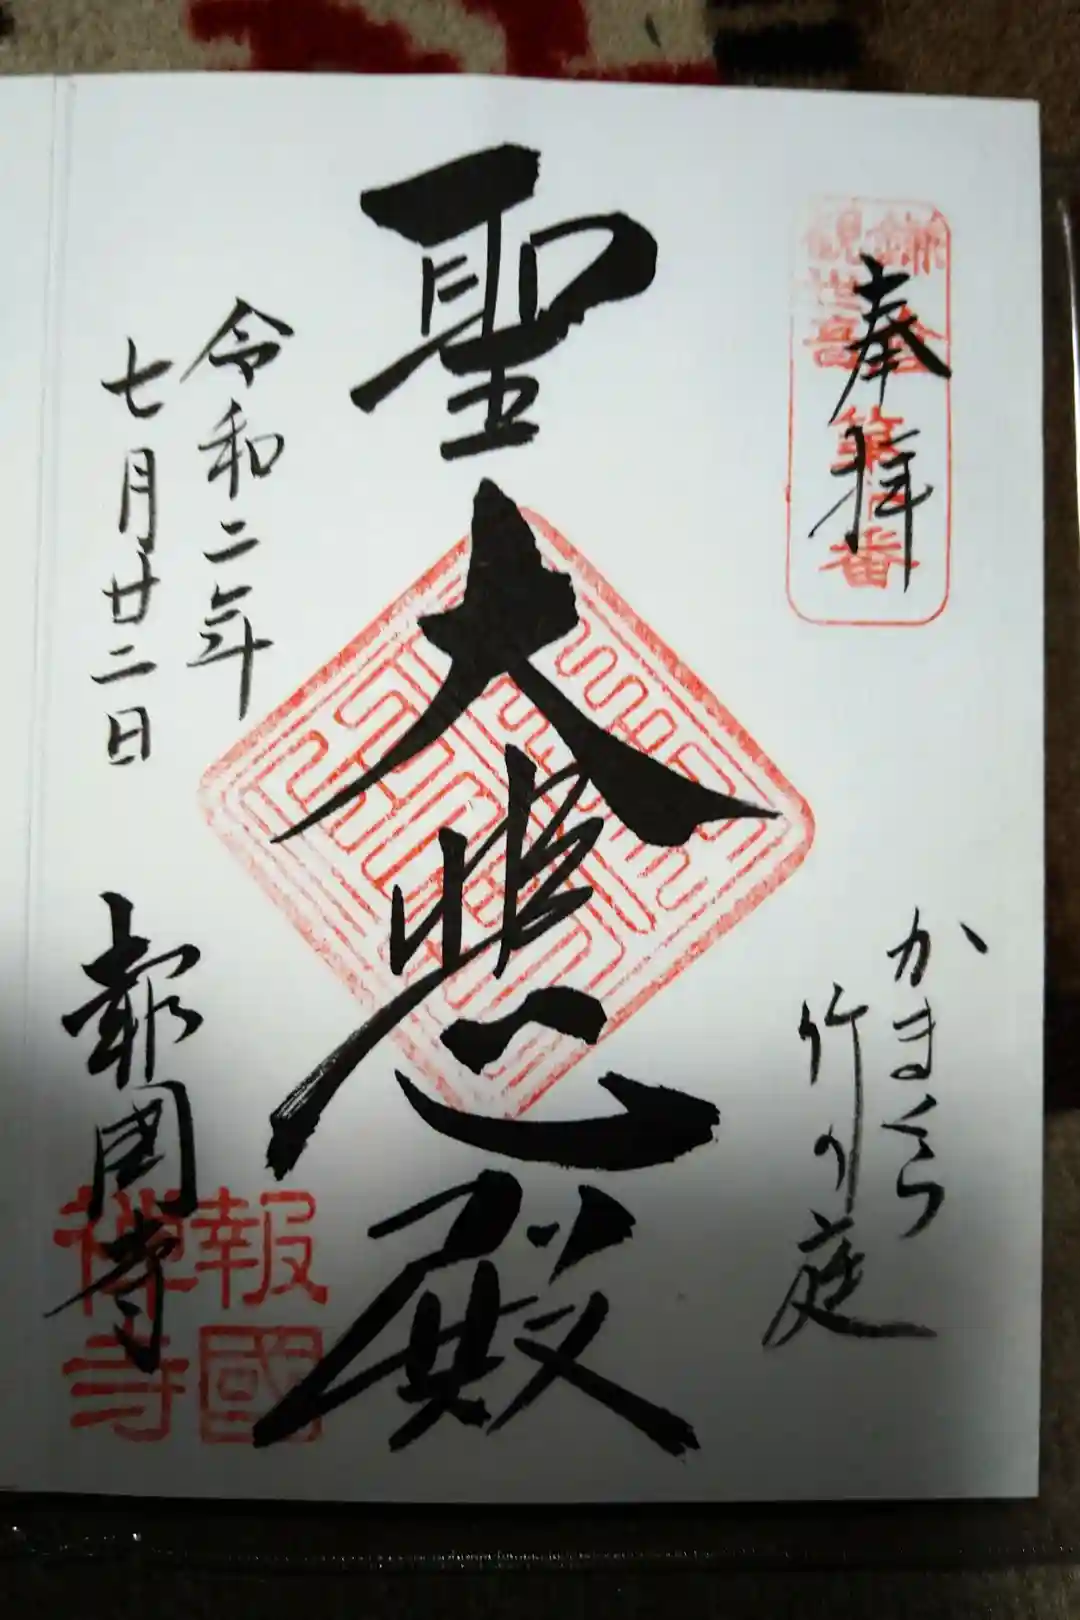 奉拝
鎌倉
観世音
第十番
かまくら
竹の庭
聖大悲殿
令和二年
七月廿二日
報国寺
報國
禅寺